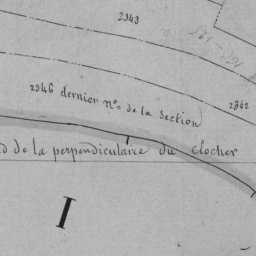 2943
2946 dernier n°. de la Section
2942
d de la perpendiculaire du clocher
I